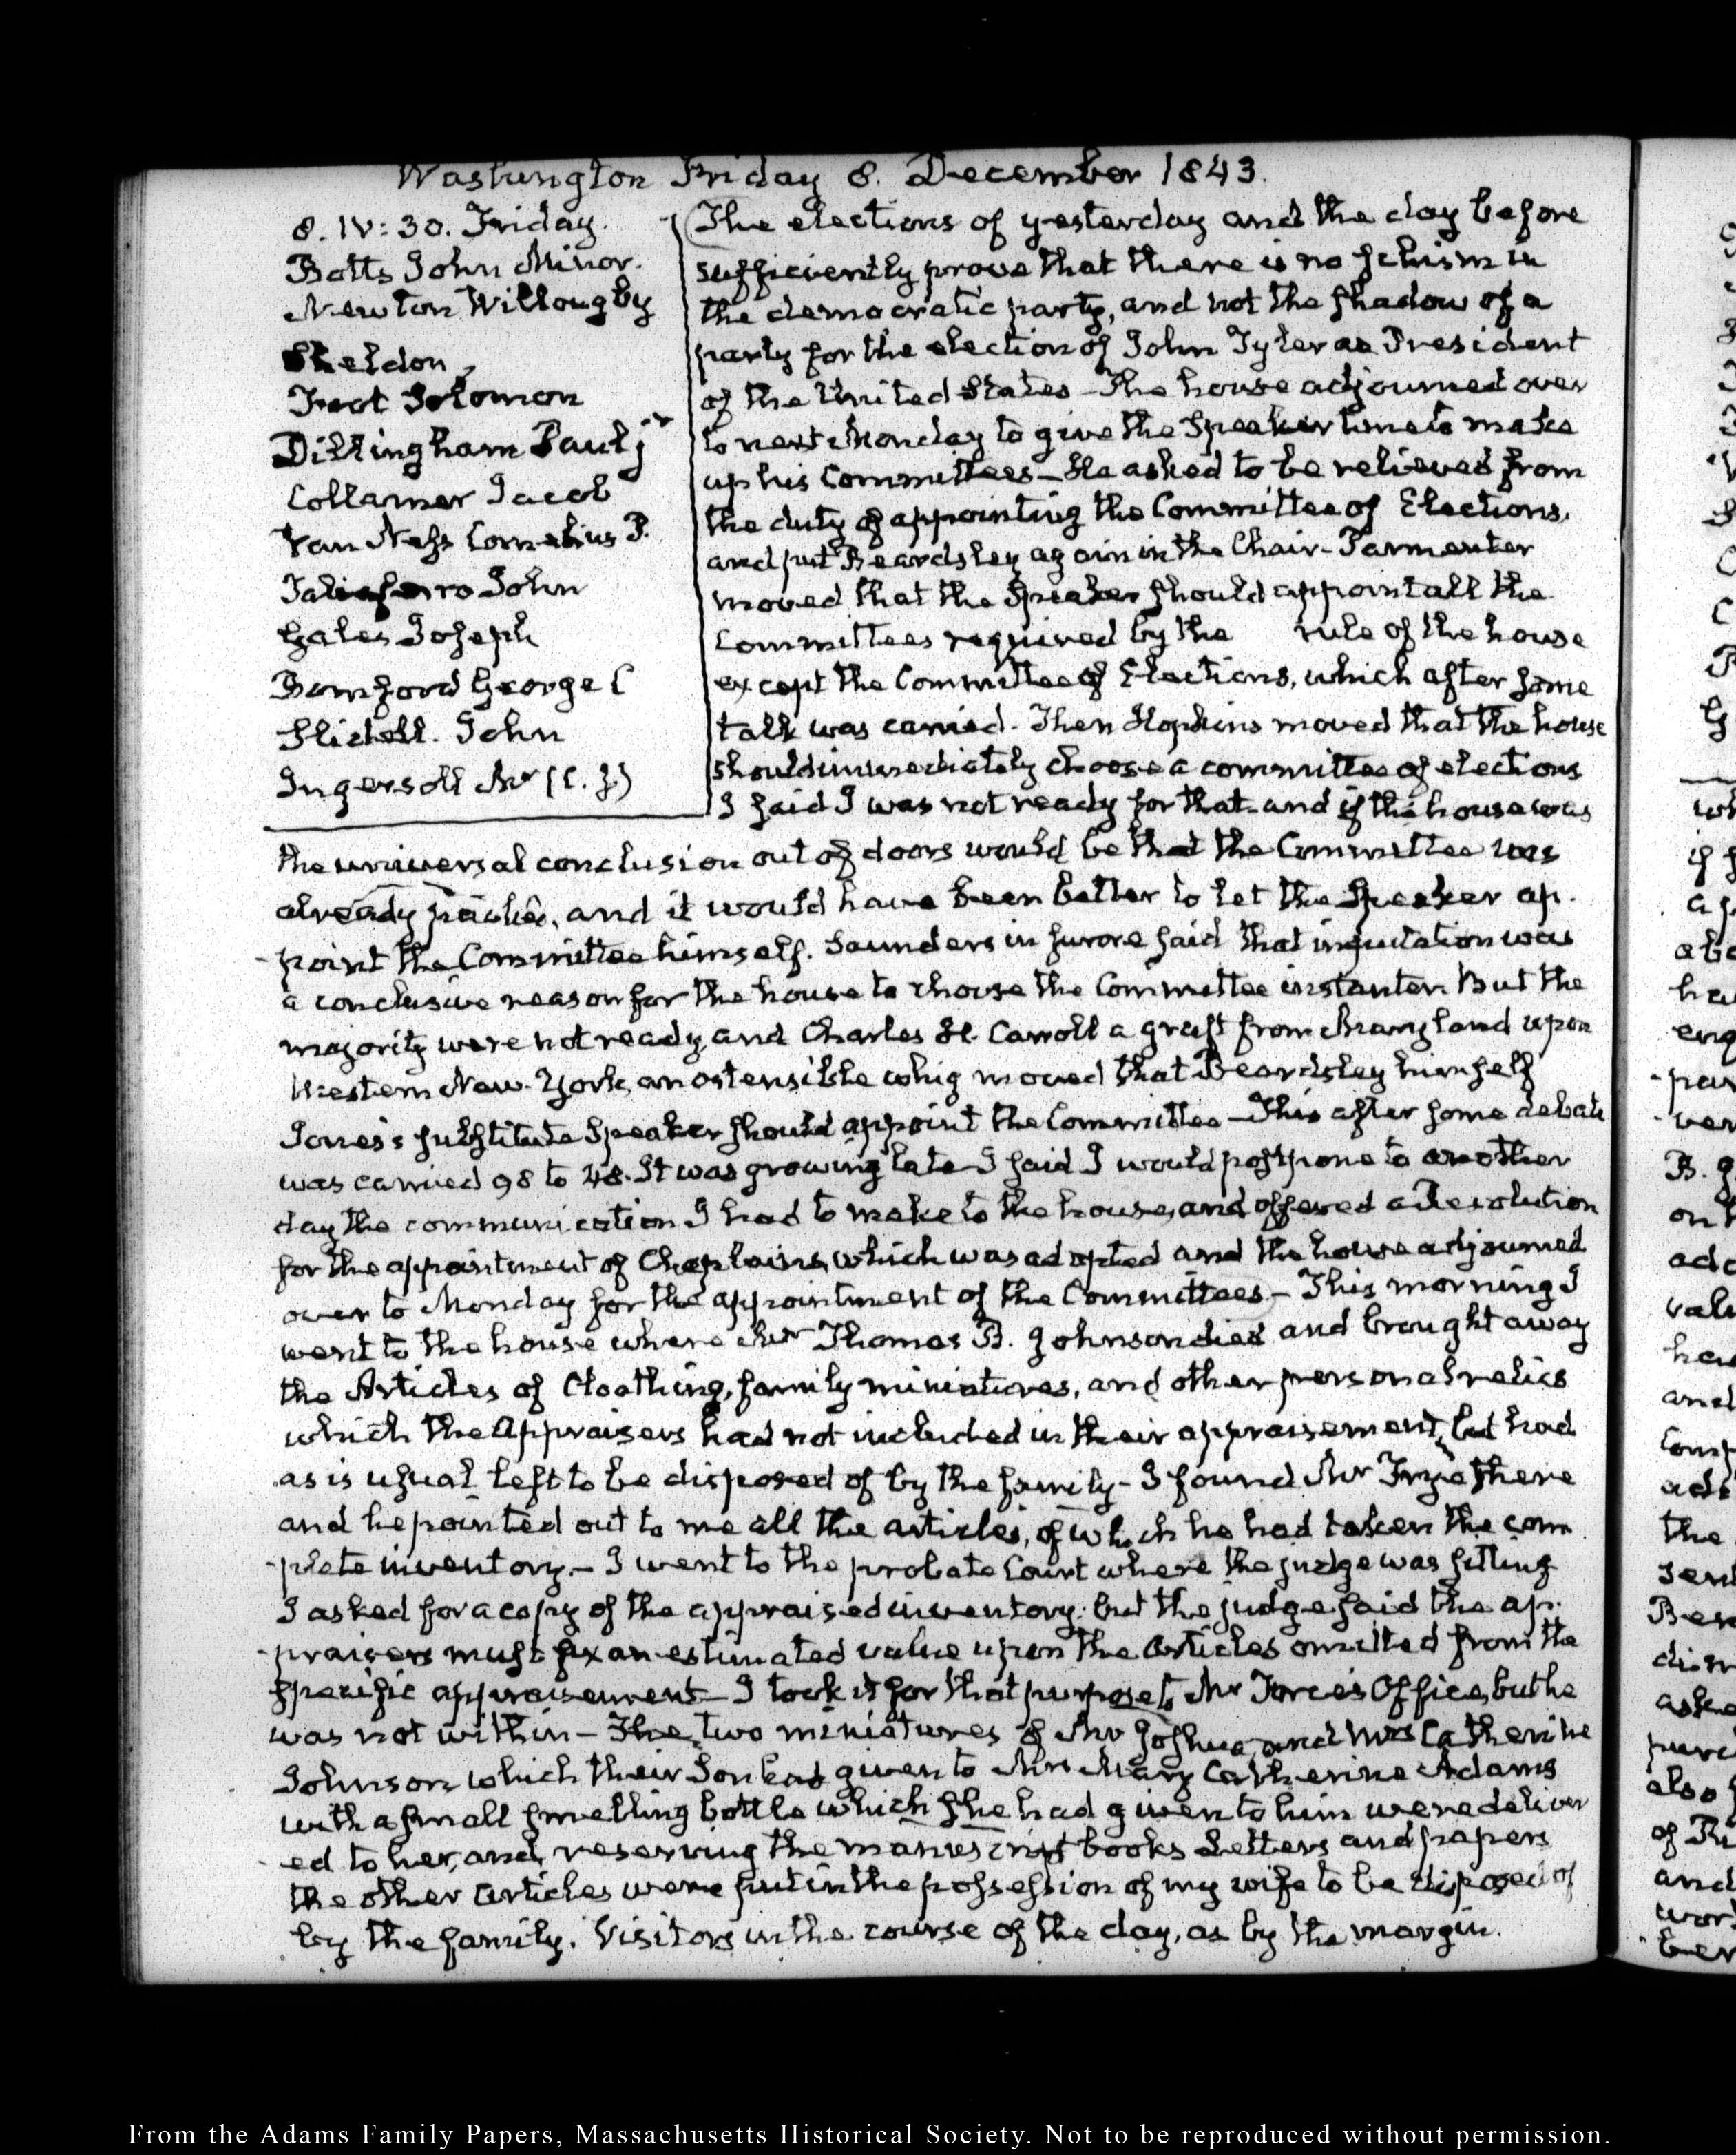 Washington Friday 8. December 1843.
8. IV:30. Friday.
Botts John Minor.
Newton Willougby
Sheldon
Foot Solomon
Dillingham Paul jr
Collamer Jacob
Van Ness Cornelius P.
Taliaferro John
Gales Joseph
Bomford George C
Slidell. John
Ingersoll Mr (C. J.)
The elections of yesterday and the day before
sufficiently prove that there is no schism in
the democratic party, and not the shadow of a
party for the election of John Tyler as President
of the United States – The house adjourned over
to next Monday to give the Speaker time to make
up his Committees – He asked to be relieved from
the duty of appointing the Committee of Elections,
and put Beardsley again in the Chair – Parmenter
moved that the Speaker should appoint all the
Committees required by the rule of the house
except the Committee of Elections, which after some
talk was carried. Then Hopkins moved that the house
should immediately choose a committee of elections
I said I was not ready for that and if the house was
the universal conclusion out of doors would be that the Committee was
already packed, and it would have been better to let the Speaker ap-
-point the Committee himself. Saunders in furore said that imputation was
a conclusive reason for the house to choose the Committee instanter. But the
majority were not ready, and Charles H. Carroll a graft from Maryland upon
Western New-York, an ostensible whig moved that Beardsley himself
Jones's substitute Speaker should appoint the Committee – This after some debate
was carried 98 to 48. It was growing late I said I would postpone to another
day the communication I had to make to the house, and offered a Resolution
for the appointment of Chaplains, which was adopted and the house adjourned
over to Monday for the appointment of the Committees – This morning I
went to the house where Mr Thomas B. Johnson died and brought away
the Articles of Cloathing, family miniatures, and other personal relics
which the Appraisers had not included in their appraisement, but had
as is usual left to be disposed of by the family – I found Mr Frye there
and he pointed out to me all the articles, of which he had taken the com
-plete inventory. – I went to the probate Court where the judge was sitting
I asked for a copy of the appraised inventory: but the judge said the ap-
-praisers must fix an estimated value upon the Articles omitted from the
specific appraisement – I took it for that purpose to Mr Force's Office, but he
was not within – The two miniatures of Mr Joshua and Mrs Catherine
Johnson which their Son had given to Mrs Mary Catherine Adams
with a small smelling bottle which she had given to him were deliver
-ed to her, and, reserving the manuscript books Letters and papers
the other articles were put in the possession of my wife to be disposed of
by the family. Visitors in the course of the day, as by the margin.
From the Adams Family Papers, Massachusetts Historical Society. Not to be reproduced without permission.